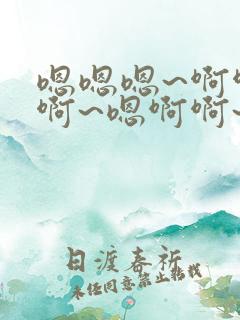 嗯嗯嗯~啊
啊~嗯啊啊~
日渡春祈
未经同意禁止转载